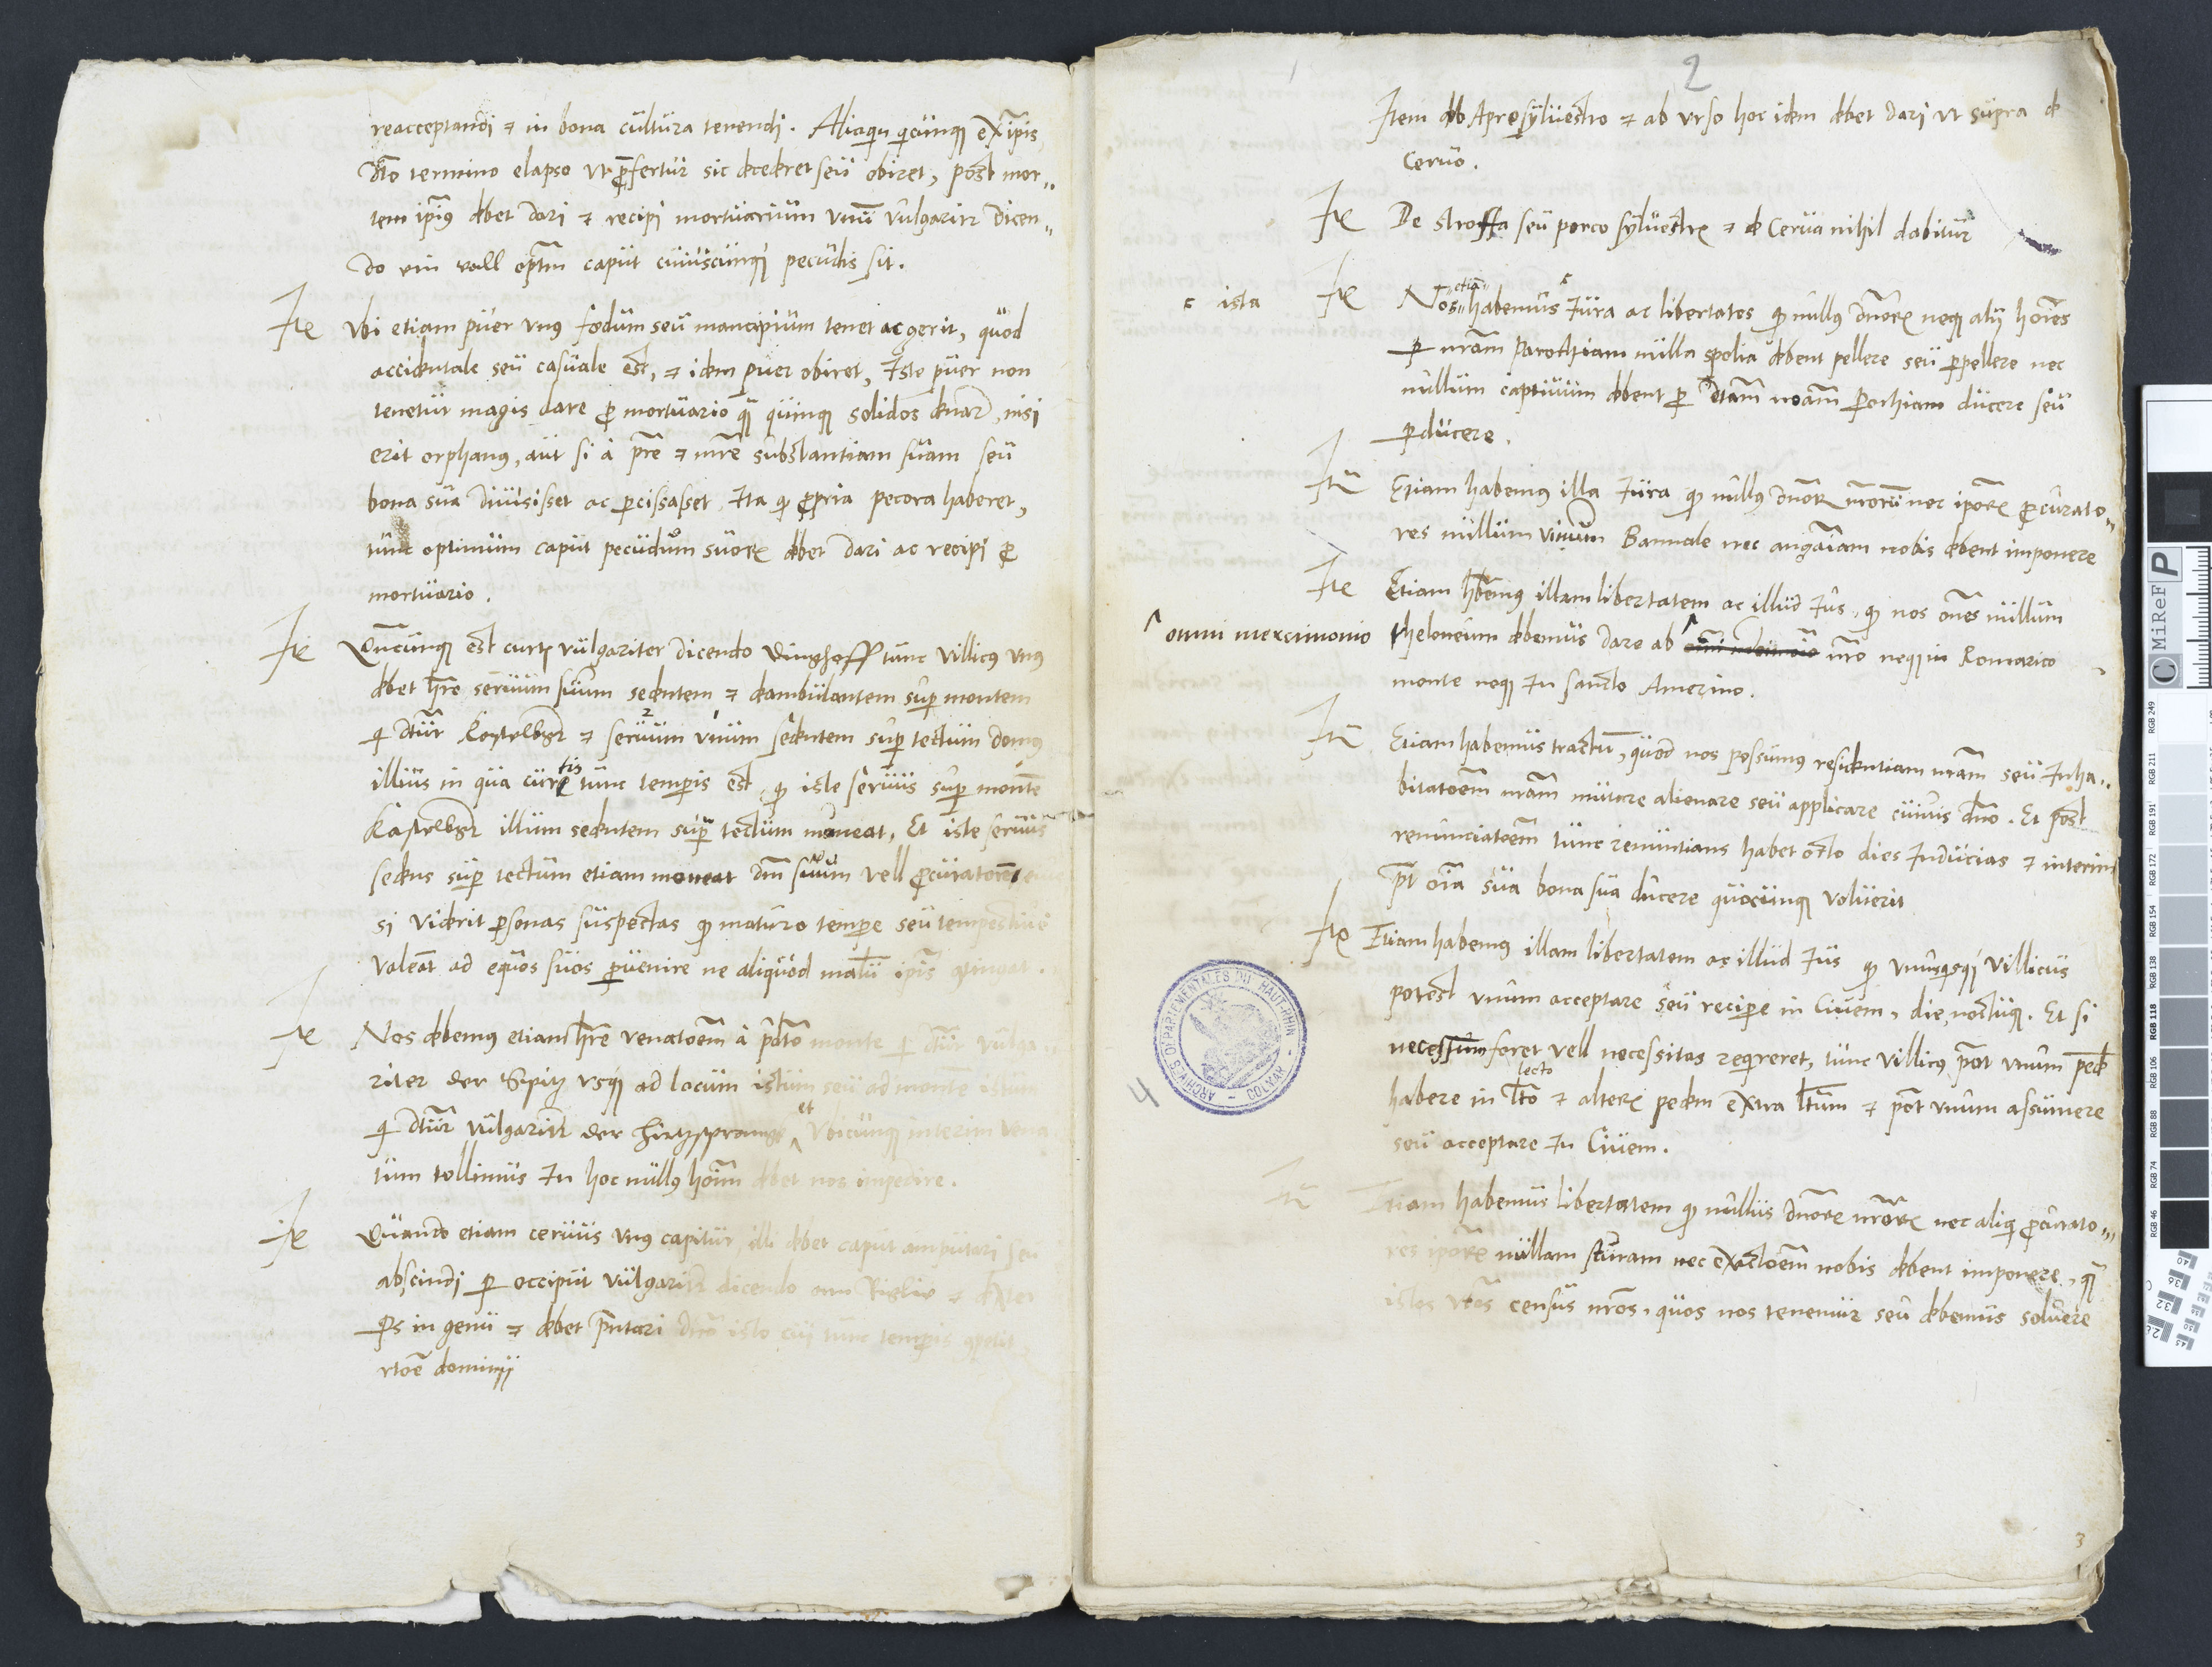 reacceptandi et in bona cultura tenendi. Alioquin quicunque ex ipis
dto termino elapso vt prfertur sic decederet seu obiret, post mor„
tem ipius debet dari et recipi mortuarium vnu vulgariter dicen„
do ein vall optm caput cuiuscunque pecudis sit.
Ite Vbi etiam puer vnus fodum seu mancipium tenet ac gerit, quod
accidentale seu casuale est, et idem puer obiret, Iste puer non
tenetur magis dare pro mortuario qua quinque solidos denar, nisi
erit orphanus, aut si à pre et mre substantiam suam seu
bona sua diuisisset ac percissasset, Ita quod propria pecora haberet,
tunc optimum caput pecudum suor debet dari ac recipi pro
mortuario.
Ite Quncunque est curt vulgariter dicendo Dinghoff tunc villicus vnus
debet hre seruum suum sedentem et deambulantem super montem
qi dtur et seruum vnum sedentem super tectum domus
illius in qua curtis tunc temporis est, quod iste seruus super monte
illum sedentem super tectum moneat, Et iste seruus
sedens super tectum etiam moneat dnm suum vell procuratorem
si viderit personas suspectas quod maturo tempore seu tempestiue
valeat ad equos suos peruenire ne aliquod malu ipis
Ite Nos debemus etiam hre venatoem à pdto monte qi dtur vulga„
riter der Spitz vsque ad locum istum seu ad monte istum
qi dtur vulgariter der Hirtzsprung et Vbicunque interim vena
tum tollimus In hoc nullus hoim debet nos impedire.
Ite Quando etiam ceruus vnus capitur, illi debet caput amputari seu
abscindi per occiput vulgariter dicendo et dexter
pes in genu et debet pntari dno isto cui tunc temporis
rtoe dominij
2
Item ab Apro syluestro et ab vrso hoc idem debet dari vt supra de
Ceruo.
Ite De stroffa seu porco syluestre et de Cerua nihil dabitur
ista
Ite Nos etia habemus Iura ac libertates quod nullus dnor neque alij hoies
per nram Parochiam nulla spolia debent pellere seu perpellere nec
nullum captiuum debent per etiam nram Parochiam ducere seu
perducere.
Itm Etiam habemus illa Iura quod nullus dnor nroru nec ipor procurato„
res nullum vinum Bannale nec angariam nobis debent imponere
Ite Etiam hbemus illam libertatem ac illud Ius, quod nos omes nullum
omni mercimonio theloneum debemus dare ab nro neque in Romarico
monte neque In sancto Amerino.
Itm Etiam habemus tractu, quod nos possumus residentiam nram seu Inha„
bitatoem nram mutare alienare seu applicare cuiuis dno. Et post
renunciatoem tunc renuntians habet octo dies Inducias et interim
pot oia sua bona sua ducere quocunque voluerit
Ite Etiam habemus illam libertatem ac illud Ius quod vnusquisque villicus
potest vnum acceptare seu recipere in Ciuem, die noctuque. Et si
necessum foret vell necessitas requireret, tunc villicus pot vnum pede
habere in lto lecto et alter pedem extra ltum et pot vnum assumere
seu acceptare In Ciuem.
Itm Etiam habemus libertatem quod nullus dnor nror nec aliqi procurato„
res ipor nullam sturam nec exactoem nobis debent imponere, qua
istos census nros, quos nos tenemur seu debemus soluere
4
3
ARCHIVES DEPARTEMENTALES DU HAUT-RHIN - COLMAR -
© MiReF P
RGB 249
RGB 211
RGB 191
RGB 172
RGB 154
RGB 138
RGB 118
RGB 106
RGB 88
RGB 74
RGB 46